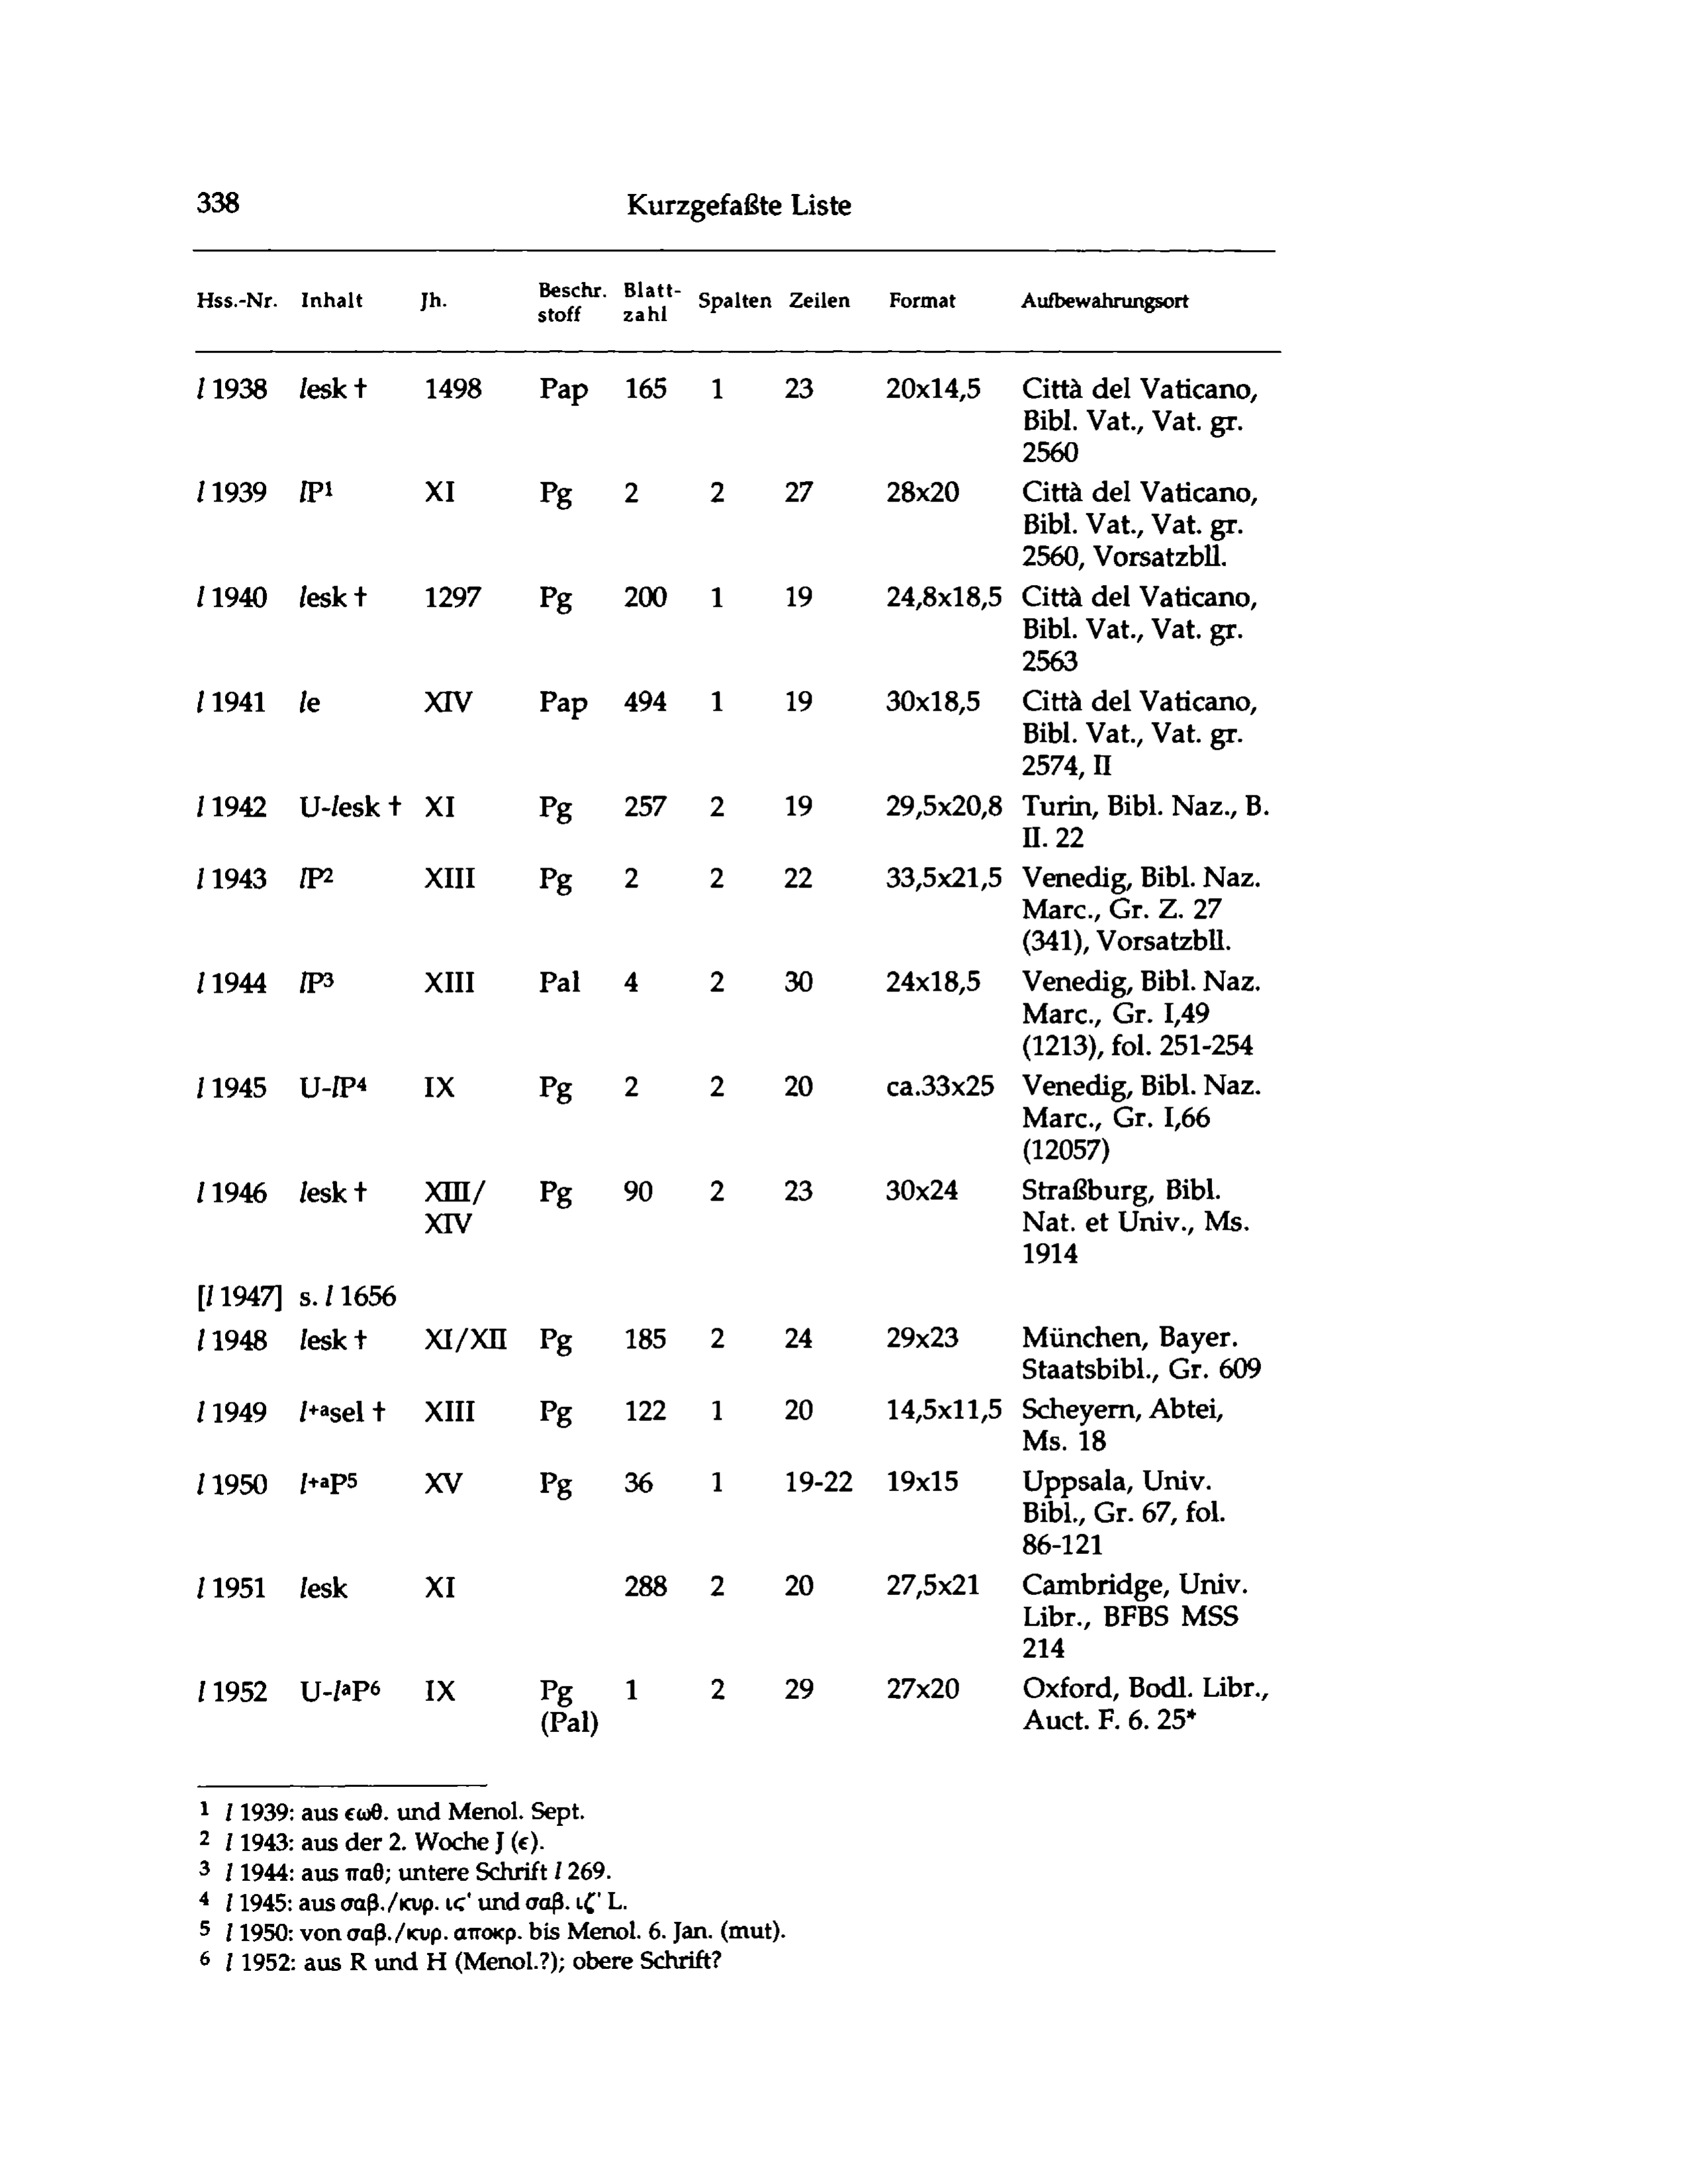 338 Kurzgefaßte Liste
Hss.-Nr. Inhalt Jh. Beschr. stoff Blatt- zahl Spalten Zeilen Format Aufbewahrungsort
l 1938 lesk † 1498 Pap 165 1 23 20x14,5 Città del Vaticano,
Bibl. Vat., Vat. gr.
2560
l 1939 lP¹ XI Pg 2 2 27 28x20 Città del Vaticano,
Bibl. Vat., Vat. gr.
2560, Vorsatzbll.
l 1940 lesk † 1297 Pg 200 1 19 24,8x18,5 Città del Vaticano,
Bibl. Vat., Vat. gr.
2563
l 1941 le XIV Pap 494 1 19 30x18,5 Città del Vaticano,
Bibl. Vat., Vat. gr.
2574, II
l 1942 U-lesk † XI Pg 257 2 19 29,5x20,8 Turin, Bibl. Naz., B.
II. 22
l 1943 lP² XIII Pg 2 2 22 33,5x21,5 Venedig, Bibl. Naz.
Marc., Gr. Z. 27
(341), Vorsatzbll.
l 1944 lP³ XIII Pal 4 2 30 24x18,5 Venedig, Bibl. Naz.
Marc., Gr. I,49
(1213), fol. 251-254
l 1945 U-lP⁴ IX Pg 2 2 20 ca.33x25 Venedig, Bibl. Naz.
Marc., Gr. I,66
(12057)
l 1946 lesk † XIII/ Pg 90 2 23 30x24 Straßburg, Bibl.
XIV Nat. et Univ., Ms.
1914
[l 1947] s. l 1656
l 1948 lesk † XI/XII Pg 185 2 24 29x23 München, Bayer.
Staatsbibl., Gr. 609
l 1949 l⁺ᵃsel † XIII Pg 122 1 20 14,5x11,5 Scheyern, Abtei,
Ms. 18
l 1950 l⁺ᵃP⁵ XV Pg 36 1 19-22 19x15 Uppsala, Univ.
Bibl., Gr. 67, fol.
86-121
l 1951 lesk XI 288 2 20 27,5x21 Cambridge, Univ.
Libr., BFBS MSS
214
l 1952 U-lᵃP⁶ IX Pg 1 2 29 27x20 Oxford, Bodl. Libr.,
(Pal) Auct. F. 6. 25*
1 l 1939: aus εωθ. und Menol. Sept.
2 l 1943: aus der 2. Woche J (ε).
3 l 1944: aus παθ; untere Schrift l 269.
4 l 1945: aus σαβ./κυρ. ιϛ' und σαβ. ιζ' L.
5 l 1950: von σαβ./κυρ. αποκρ. bis Menol. 6. Jan. (mut).
6 l 1952: aus R und H (Menol.?); obere Schrift?